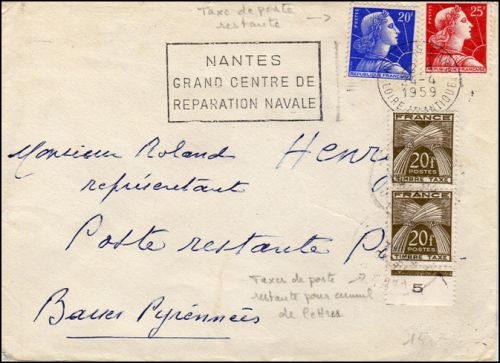 Taxe de poste
restante
20F
POSTES
REPUBLIQUE FRANÇAISE
25F
POSTES
REPUBLIQUE FRANÇAISE
NANTES
GRAND CENTRE DE
REPARATION NAVALE
4-4
1959
LOIRE ATLANTIQUE
Monsieur Roland Henr
représentant
Poste restante
Basses Pyrénnées
FRANCE
20F
POSTES
TIMBRE TAXE
FRANCE
20F
POSTES
TIMBRE TAXE
5
Taxes de poste
restante pour cumul
de lettres